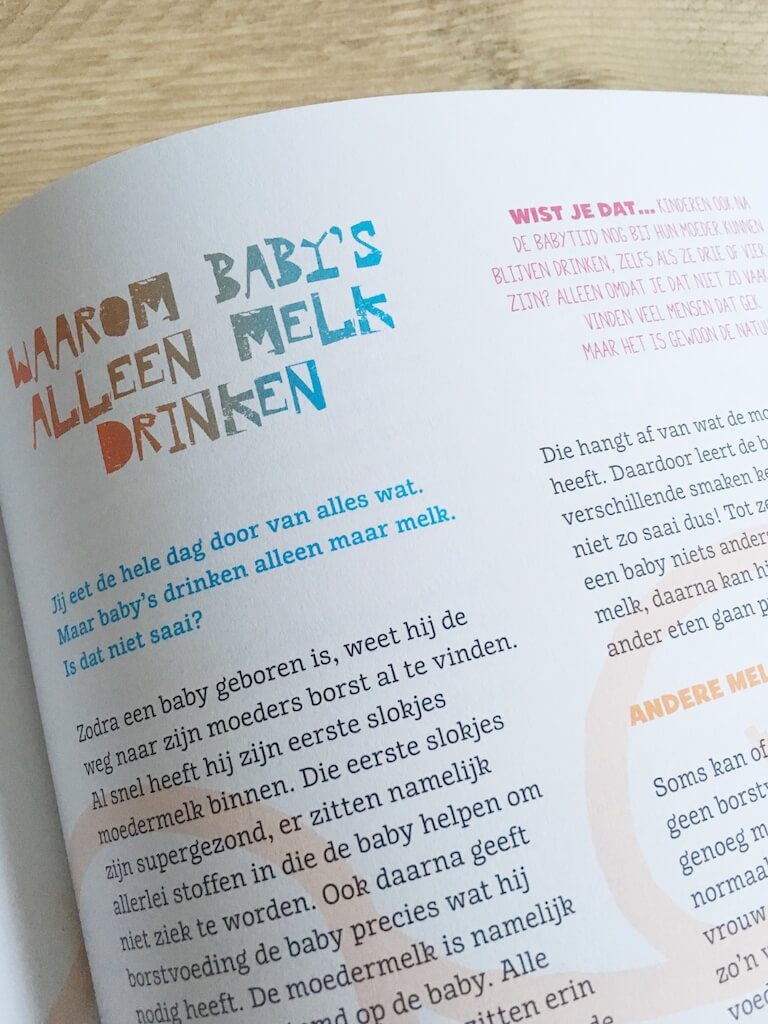 WAAROM BABY'S
ALLEEN MELK
DRINKEN
Jij eet de hele dag door van alles wat.
Maar baby's drinken alleen maar melk.
Is dat niet saai?
Zodra een baby geboren is, weet hij de
weg naar zijn moeders borst al te vinden.
Al snel heeft hij zijn eerste slokjes
moedermelk binnen. Die eerste slokjes
zijn supergezond, er zitten namelijk
allerlei stoffen in die de baby helpen om
niet ziek te worden. Ook daarna geeft
borstvoeding de baby precies wat hij
nodig heeft. De moedermelk is namelijk
op de baby. Alle
zitten erin
de
WIST JE DAT... KINDEREN OOK NA
DE BABYTIJD NOG BIJ HUN MOEDER KUNNEN
BLIJVEN DRINKEN, ZELFS ALS ZE DRIE OF VIER
ZIJN? ALLEEN OMDAT JE DAT NIET ZO VAAK
VINDEN VEEL MENSEN DAT GEK
MAAR HET IS GEWOON DE
Die hangt af van wat de
heeft. Daardoor leert de
verschillende smaken
niet zo saai dus! Tot
een baby niets
melk, daarna kan
ander eten gaan
ANDERE
Soms kan of
geen
genoeg
vrouw
zo'n